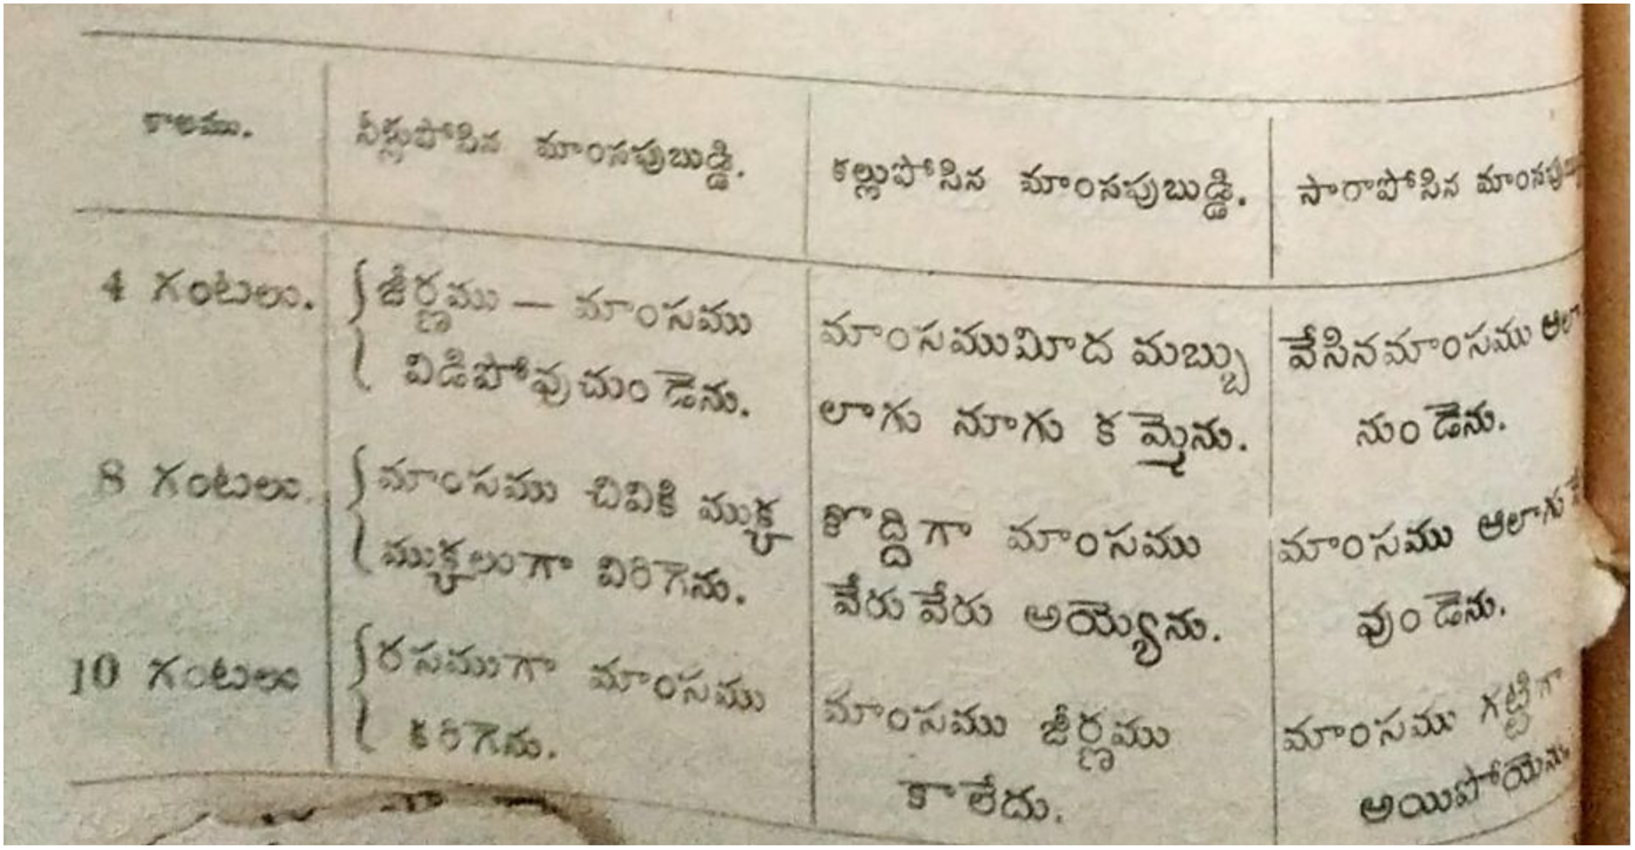 కాలము. నీళ్లుపోసిన మాంసపుబుడ్డి. కల్లుపోసిన మాంసపుబుడ్డి. సారాపోసిన
4 గంటలు. జీర్ణము — మాంసము మాంసముమీద మబ్బు వేసినమాంసము
విడిపోవుచుండెను. లాగు నూగు కమ్మెను. నుండెను.
8 గంటలు. మాంసము చివికి ముక్క కొద్దిగా మాంసము మాంసము ఆలాగు
ముక్కలుగా విరిగెను. వేరువేరు అయ్యెను. వుండెను.
10 గంటలు రసముగా మాంసము మాంసము జీర్ణము మాంసము గట్టిగా
కరిగెను. కాలేదు. అయిపోయెను.